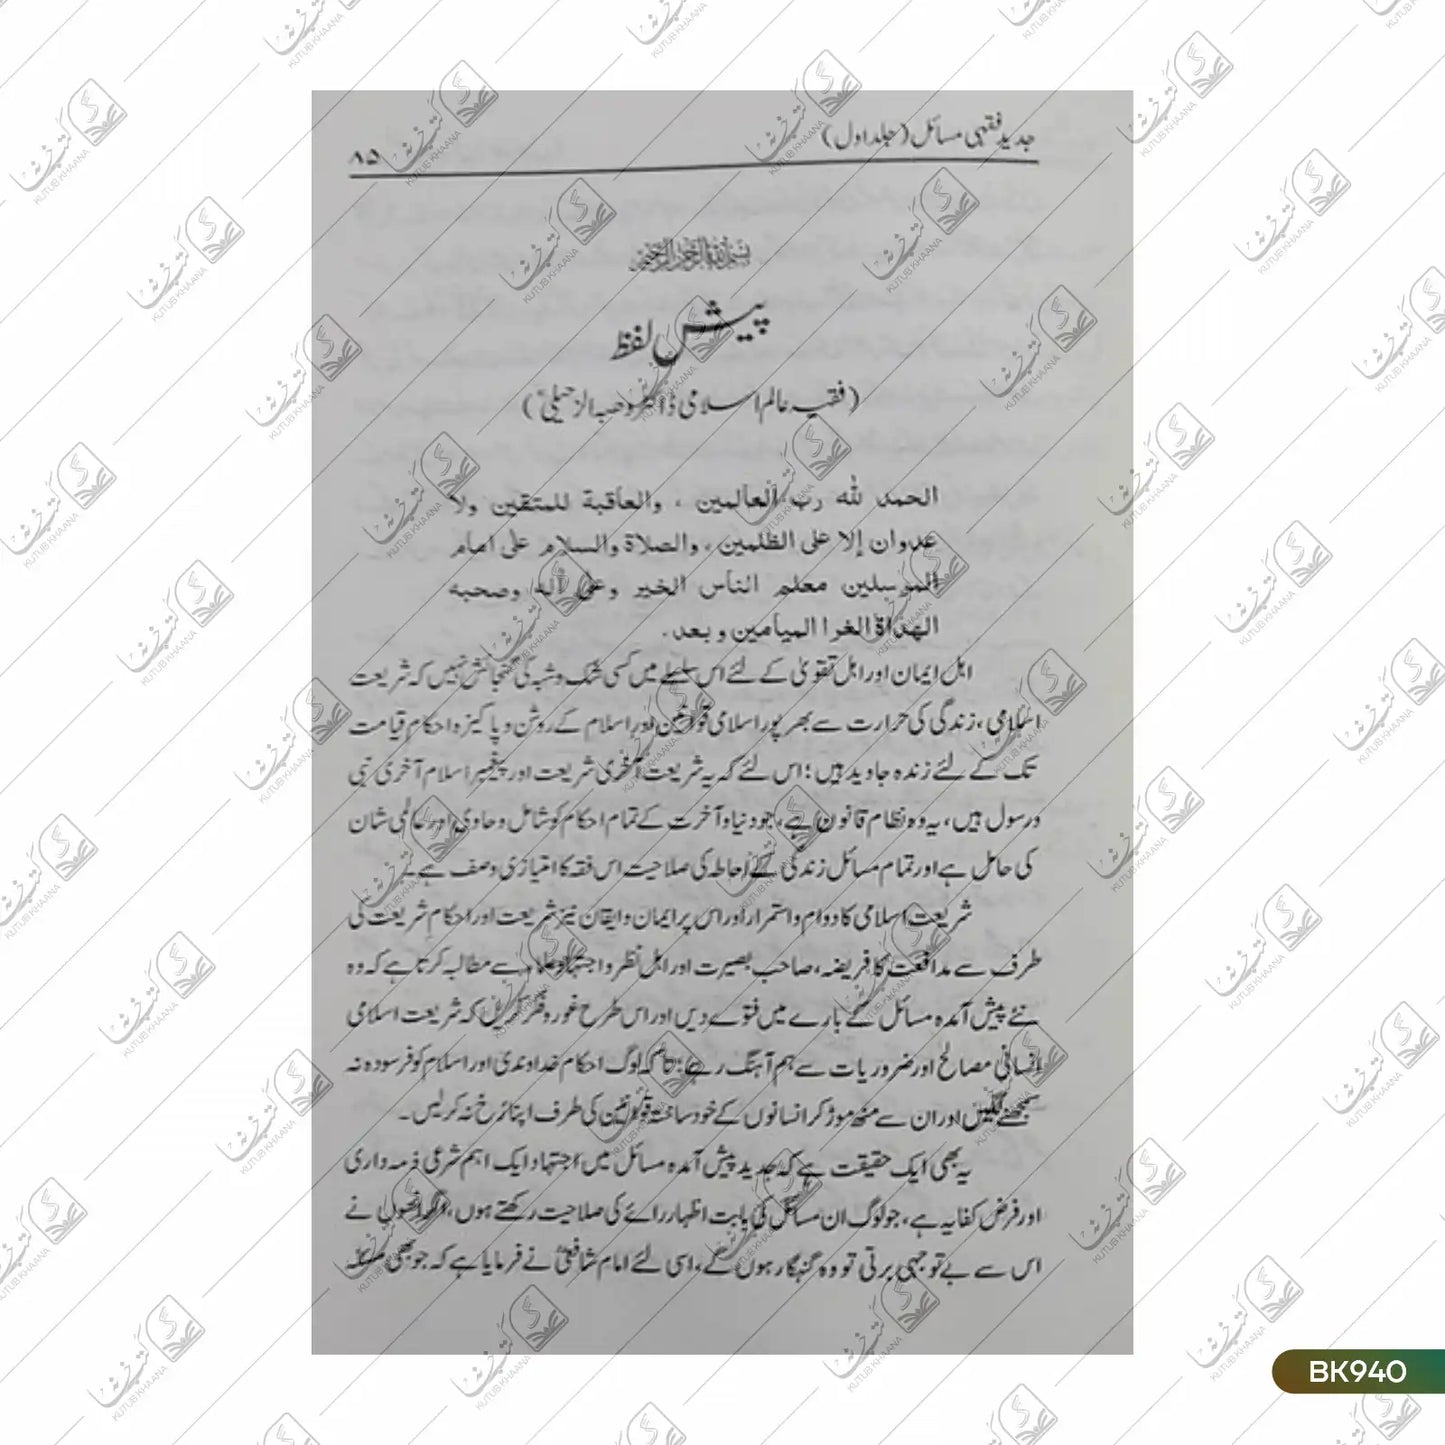 جدید فقہی مسائل (جلد اول)
۸۵
بسم اللہ الرحمن الرحیم
پیش لفظ
(فقیہ عالم اسلامی ڈاکٹر وصبہ الزحیلیؒ)
الحمد لله رب العالمين ، والعاقبة للمتقين ولا
عدوان إلا على الظلمين ، والصلاة والسلام على امام
المرسلين معلم الناس الخير وعلى آله وصحبه
الهداة الغر الميامين وبعد .
اہل ایمان اور اہل تقویٰ کے لئے اس سلسلے میں کسی شک و شبہ کی گنجائش نہیں کہ شریعت
اسلامی، زندگی کی حرارت سے بھرپور اسلامی قوانین اور اسلام کے روشن و پاکیزہ احکام قیامت
تک کے لئے زندہ جاوید ہیں؛ اس لئے کہ یہ شریعت آخری شریعت اور پیغمبر اسلام آخری نبی
ورسول ہیں، یہ وہ نظام قانون ہے، جو دنیا و آخرت کے تمام احکام کو شامل و حاوی اور عالمی شان
کی حامل ہے اور تمام مسائل زندگی کے احاطہ کی صلاحیت اس فقہ کا امتیازی وصف ہے۔
شریعت اسلامی کا دوام و استمرار اور اس پر ایمان و ایقان نیز شریعت اور احکام شریعت کی
طرف سے مدافعت کا فریضہ، صاحب بصیرت اور اہل نظر و اجتہاد علماء سے مطالبہ کرتا ہے کہ وہ
نئے پیش آمدہ مسائل کے بارے میں فتوے دیں اور اس طرح غور و فکر کریں کہ شریعت اسلامی
انسانی مصالح اور ضروریات سے ہم آہنگ رہے؛ تاکہ لوگ احکام خداوندی اور اسلام کو فرسودہ نہ
سمجھنے لگیں اور ان سے منھ موڑ کر انسانوں کے خود ساختہ قوانین کی طرف اپنا رُخ نہ کر لیں۔
یہ بھی ایک حقیقت ہے کہ جدید پیش آمدہ مسائل میں اجتہاد ایک اہم شرعی ذمہ داری
اور فرض کفایہ ہے، جو لوگ ان مسائل کی بابت اظہار رائے کی صلاحیت رکھتے ہوں، اگر انھوں نے
اس سے بے توجہی برتی تو وہ گنہگار ہوں گے، اسی لئے امام شافعیؒ نے فرمایا ہے کہ جو بھی مسئلہ
BK940